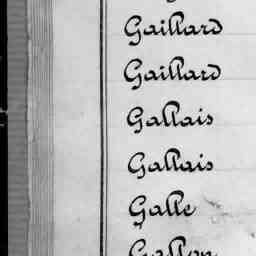 Gaillard
Gaillard
Gallais
Gallais
Galle
Gallon